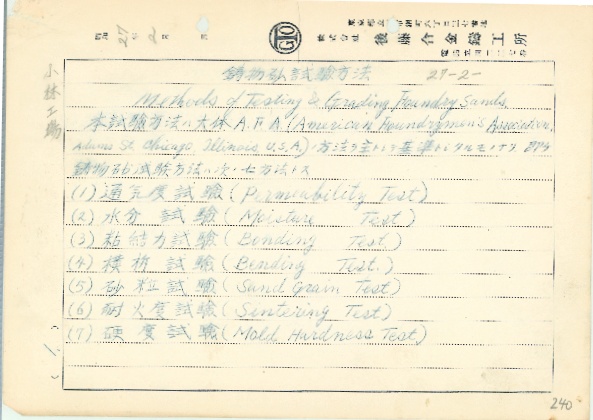 昭和 27年 2月 日
GTO
東京都
株式会社 後藤合金鋳工所
小林工場
鋳物砂試験方法 27-2-
Methods of Testing & Grading Foundry Sands.
本試験方法ハ大体 A.F.A (American Foundrymen's Association,
Adams St. Chicago, Illinois U.S.A.) ノ方法ヲ主トシテ基準トシタルモノナリ
鋳物砂試験方法ハ次ノ七方法トス
(1) 通気度試験 (Permeability Test)
(2) 水分 試験 (Moisture Test)
(3) 粘結力試験 (Bonding Test.)
(4) 試験 (Bending Test.)
(5) 砂粒試験 (Sand Grain Test)
(6) 耐火度試験 (Sintering Test)
(7) 硬度試験 (Mold Hardness Test)
(1.)
240